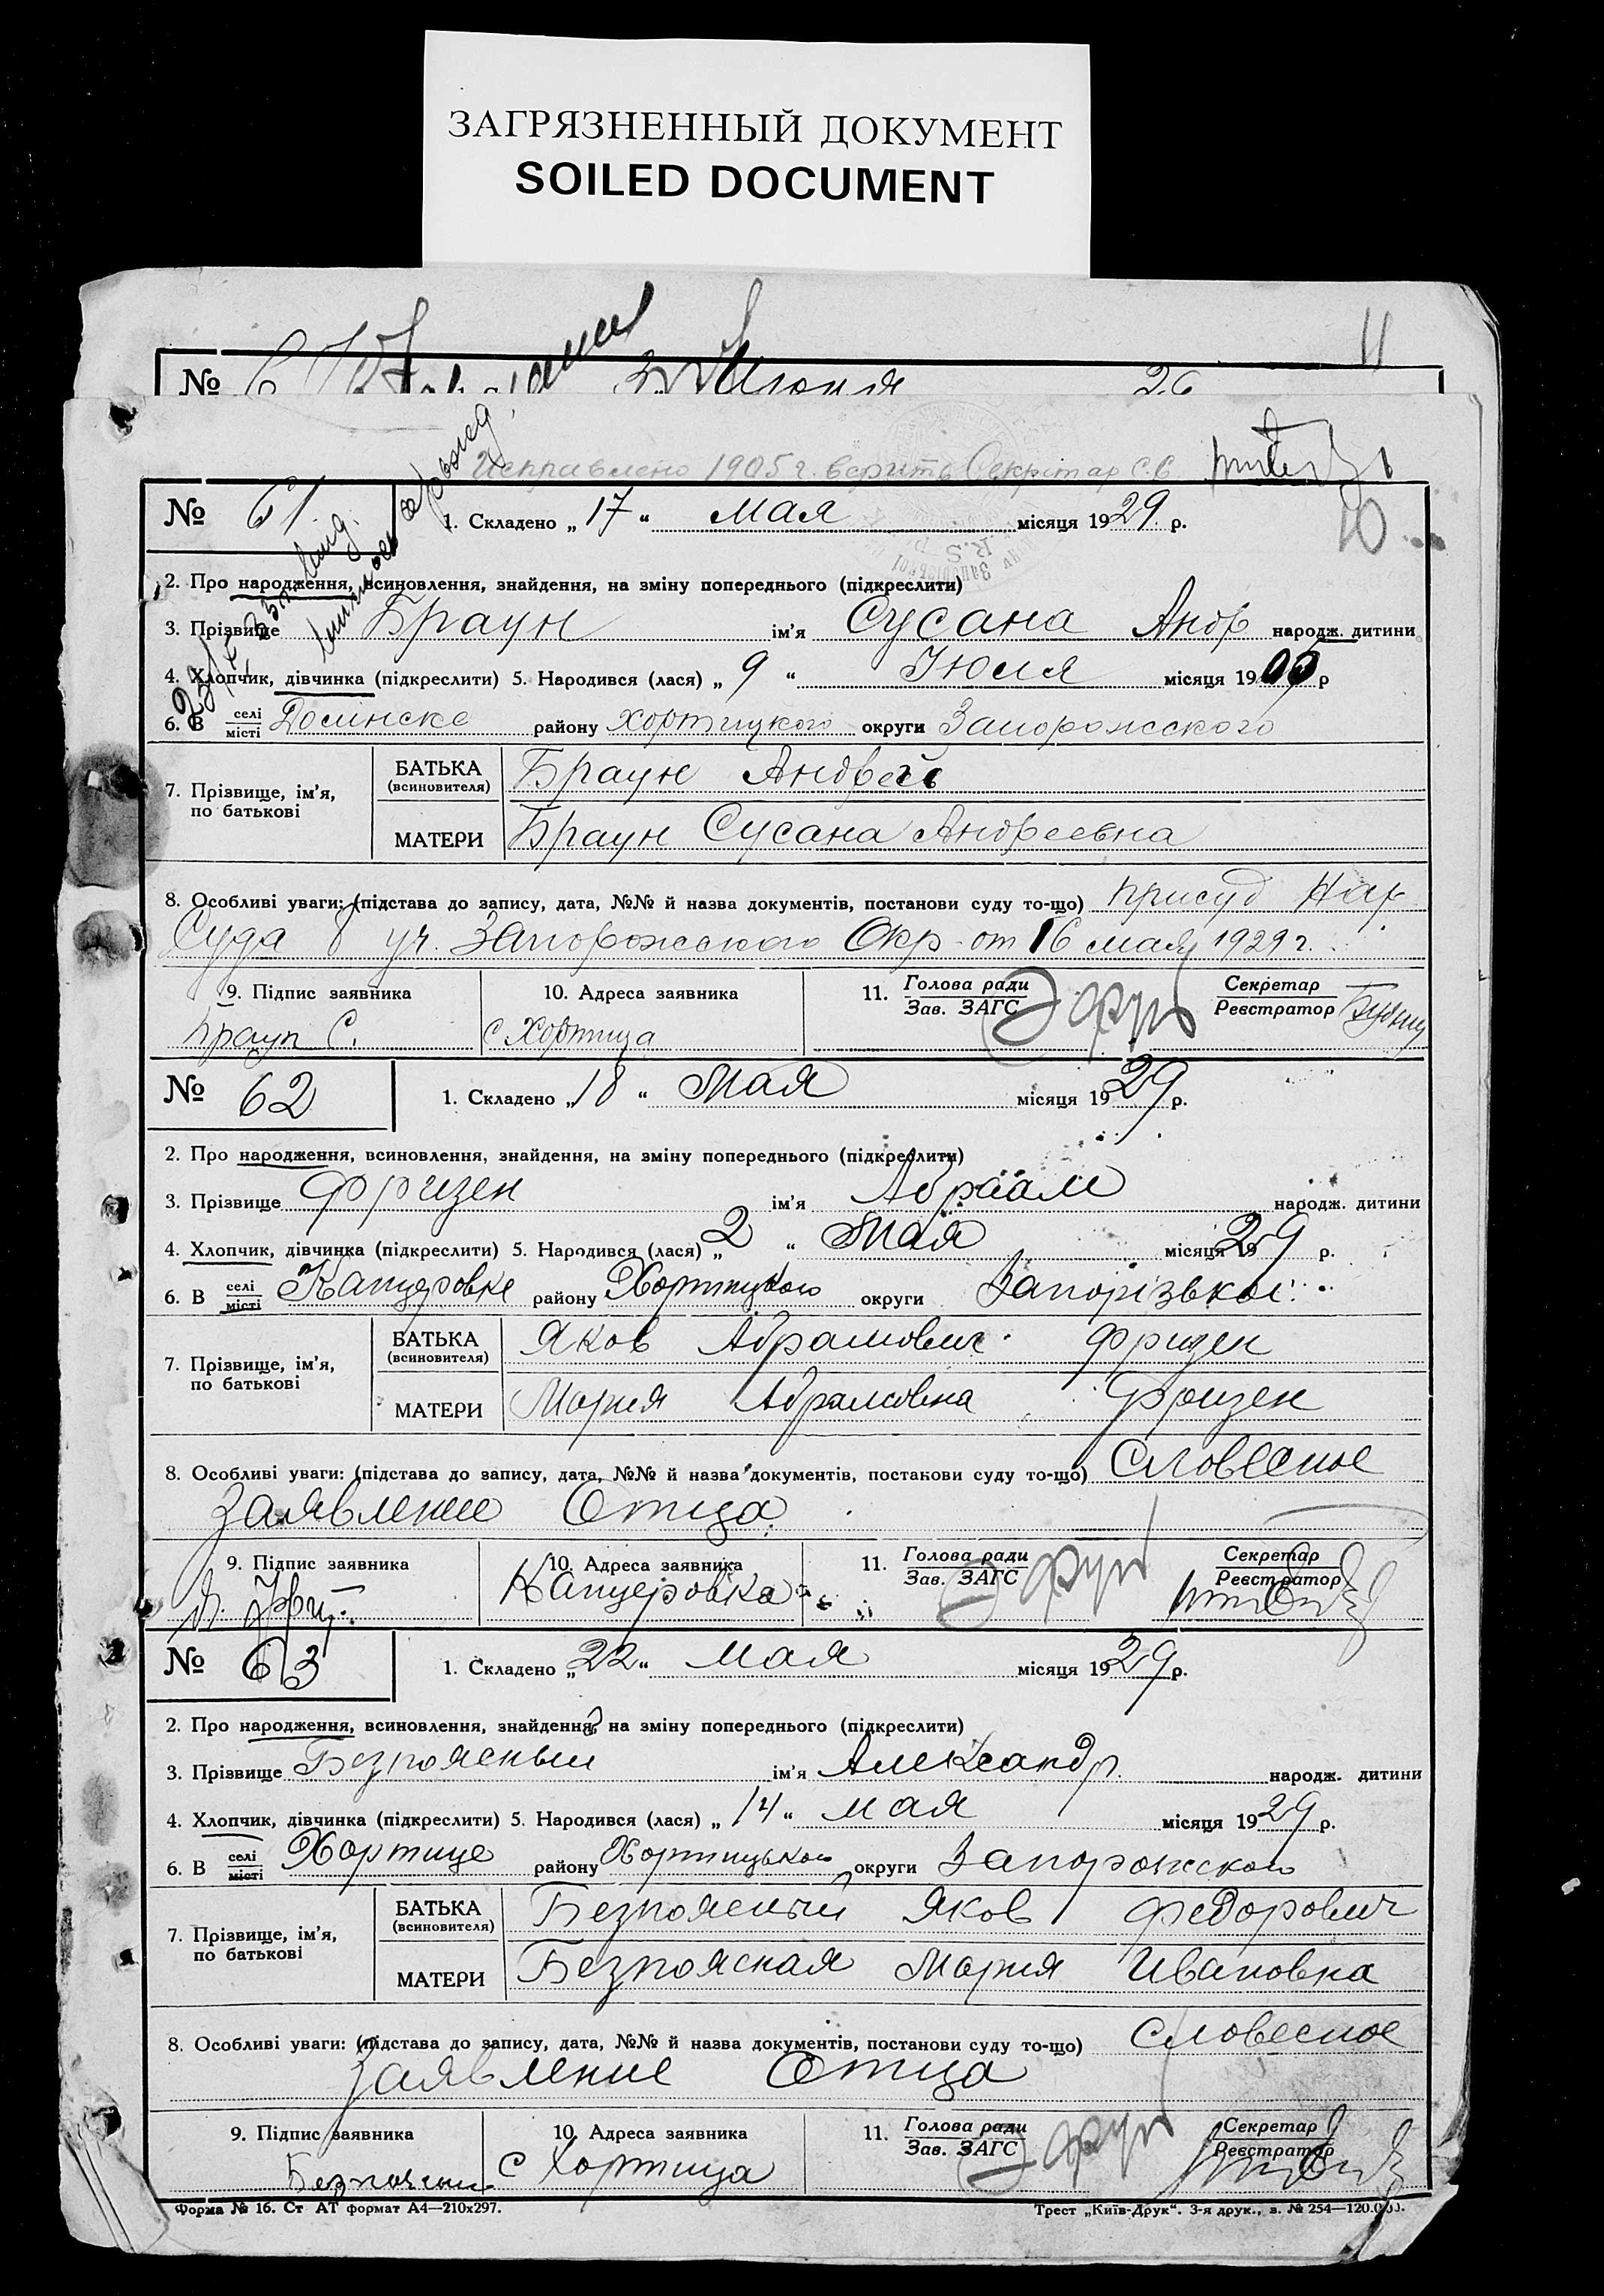 ЗАГРЯЗНЕННЫЙ ДОКУМЕНТ
SOILED DOCUMENT
11
№
Июня 26
Исправлено 1905 г. верить Секрітар С.С.
10
№ 61 1. Складено „17“ мая місяця 1929 р.
2. Про народження, всиновлення, знайдення, на зміну попереднього (підкреслити)
3. Прізвище Браун ім'я Сусана Андр народж. дитини
4. Хлопчик, дівчинка (підкреслити) 5. Народився (лася) „9“ Июля місяця 1905 р
6. В селі/місті Долинске району Хортицкого округи Запорожского
7. Прізвище, ім'я, по батькові
БАТЬКА (всиновителя) Браун Андрей
МАТЕРИ Браун Сусана Андреевна
8. Особливі уваги: (підстава до запису, дата, №№ й назва документів, постанови суду то-що) присуд Нар
Суда 8 уч. Запорожского Окр. от 16 мая 1929 г.
9. Підпис заявника 10. Адреса заявника 11. Голова ради/Зав. ЗАГС Секретар/Реєстратор
Браун С. с Хортица
№ 62 1. Складено „18“ Мая місяця 1929 р.
2. Про народження, всиновлення, знайдення, на зміну попереднього (підкреслити)
3. Прізвище Фризен ім'я Абраам народж. дитини
4. Хлопчик, дівчинка (підкреслити) 5. Народився (лася) „2“ Мая місяця 1929 р.
6. В селі/місті Канцеровке району Хортицкого округи Запорізької
7. Прізвище, ім'я, по батькові
БАТЬКА (всиновителя) Яков Абрамович Фризен
МАТЕРИ Мария Абрамовна Фризен
8. Особливі уваги: (підстава до запису, дата, №№ й назва документів, постанови суду то-що) Словесное
Заявление Отца
9. Підпис заявника 10. Адреса заявника 11. Голова ради/Зав. ЗАГС Секретар/Реєстратор
Канцеровка
№ 63 1. Складено „22“ мая місяця 1929 р.
2. Про народження, всиновлення, знайдення, на зміну попереднього (підкреслити)
3. Прізвище Безпоясный ім'я Александр народж. дитини
4. Хлопчик, дівчинка (підкреслити) 5. Народився (лася) „14“ мая місяця 1929 р.
6. В селі/місті Хортице району Хортицького округи Запорожского
7. Прізвище, ім'я, по батькові
БАТЬКА (всиновителя) Безпоясный Яков Федорович
МАТЕРИ Безпоясная Мария Ивановна
8. Особливі уваги: (підстава до запису, дата, №№ й назва документів, постанови суду то-що) Словесное
Заявление Отца
9. Підпис заявника 10. Адреса заявника 11. Голова ради/Зав. ЗАГС Секретар/Реєстратор
с Хортица
Форма № 16. Ст АТ формат А4—210х297. Трест „Київ-Друк“. 3-я друк., з. № 254—120.000.